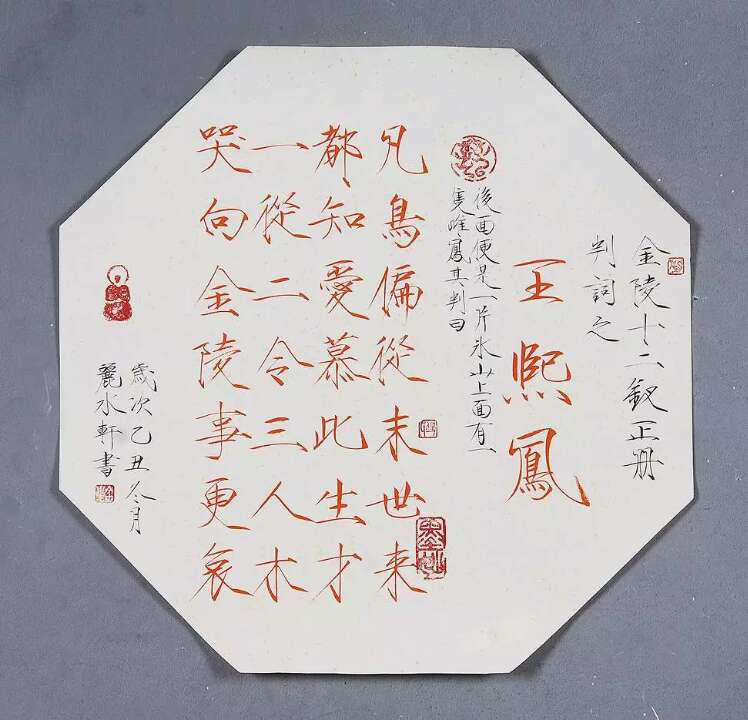 金陵十二釵正册
判詞之
王熙鳳
後面便是一片氷山上面有一
隻雌鳳其判曰
凡鳥偏從末世来
都知愛慕此生才
一從二令三人木
哭向金陵事更哀
歲次乙丑冬月
麗水軒書